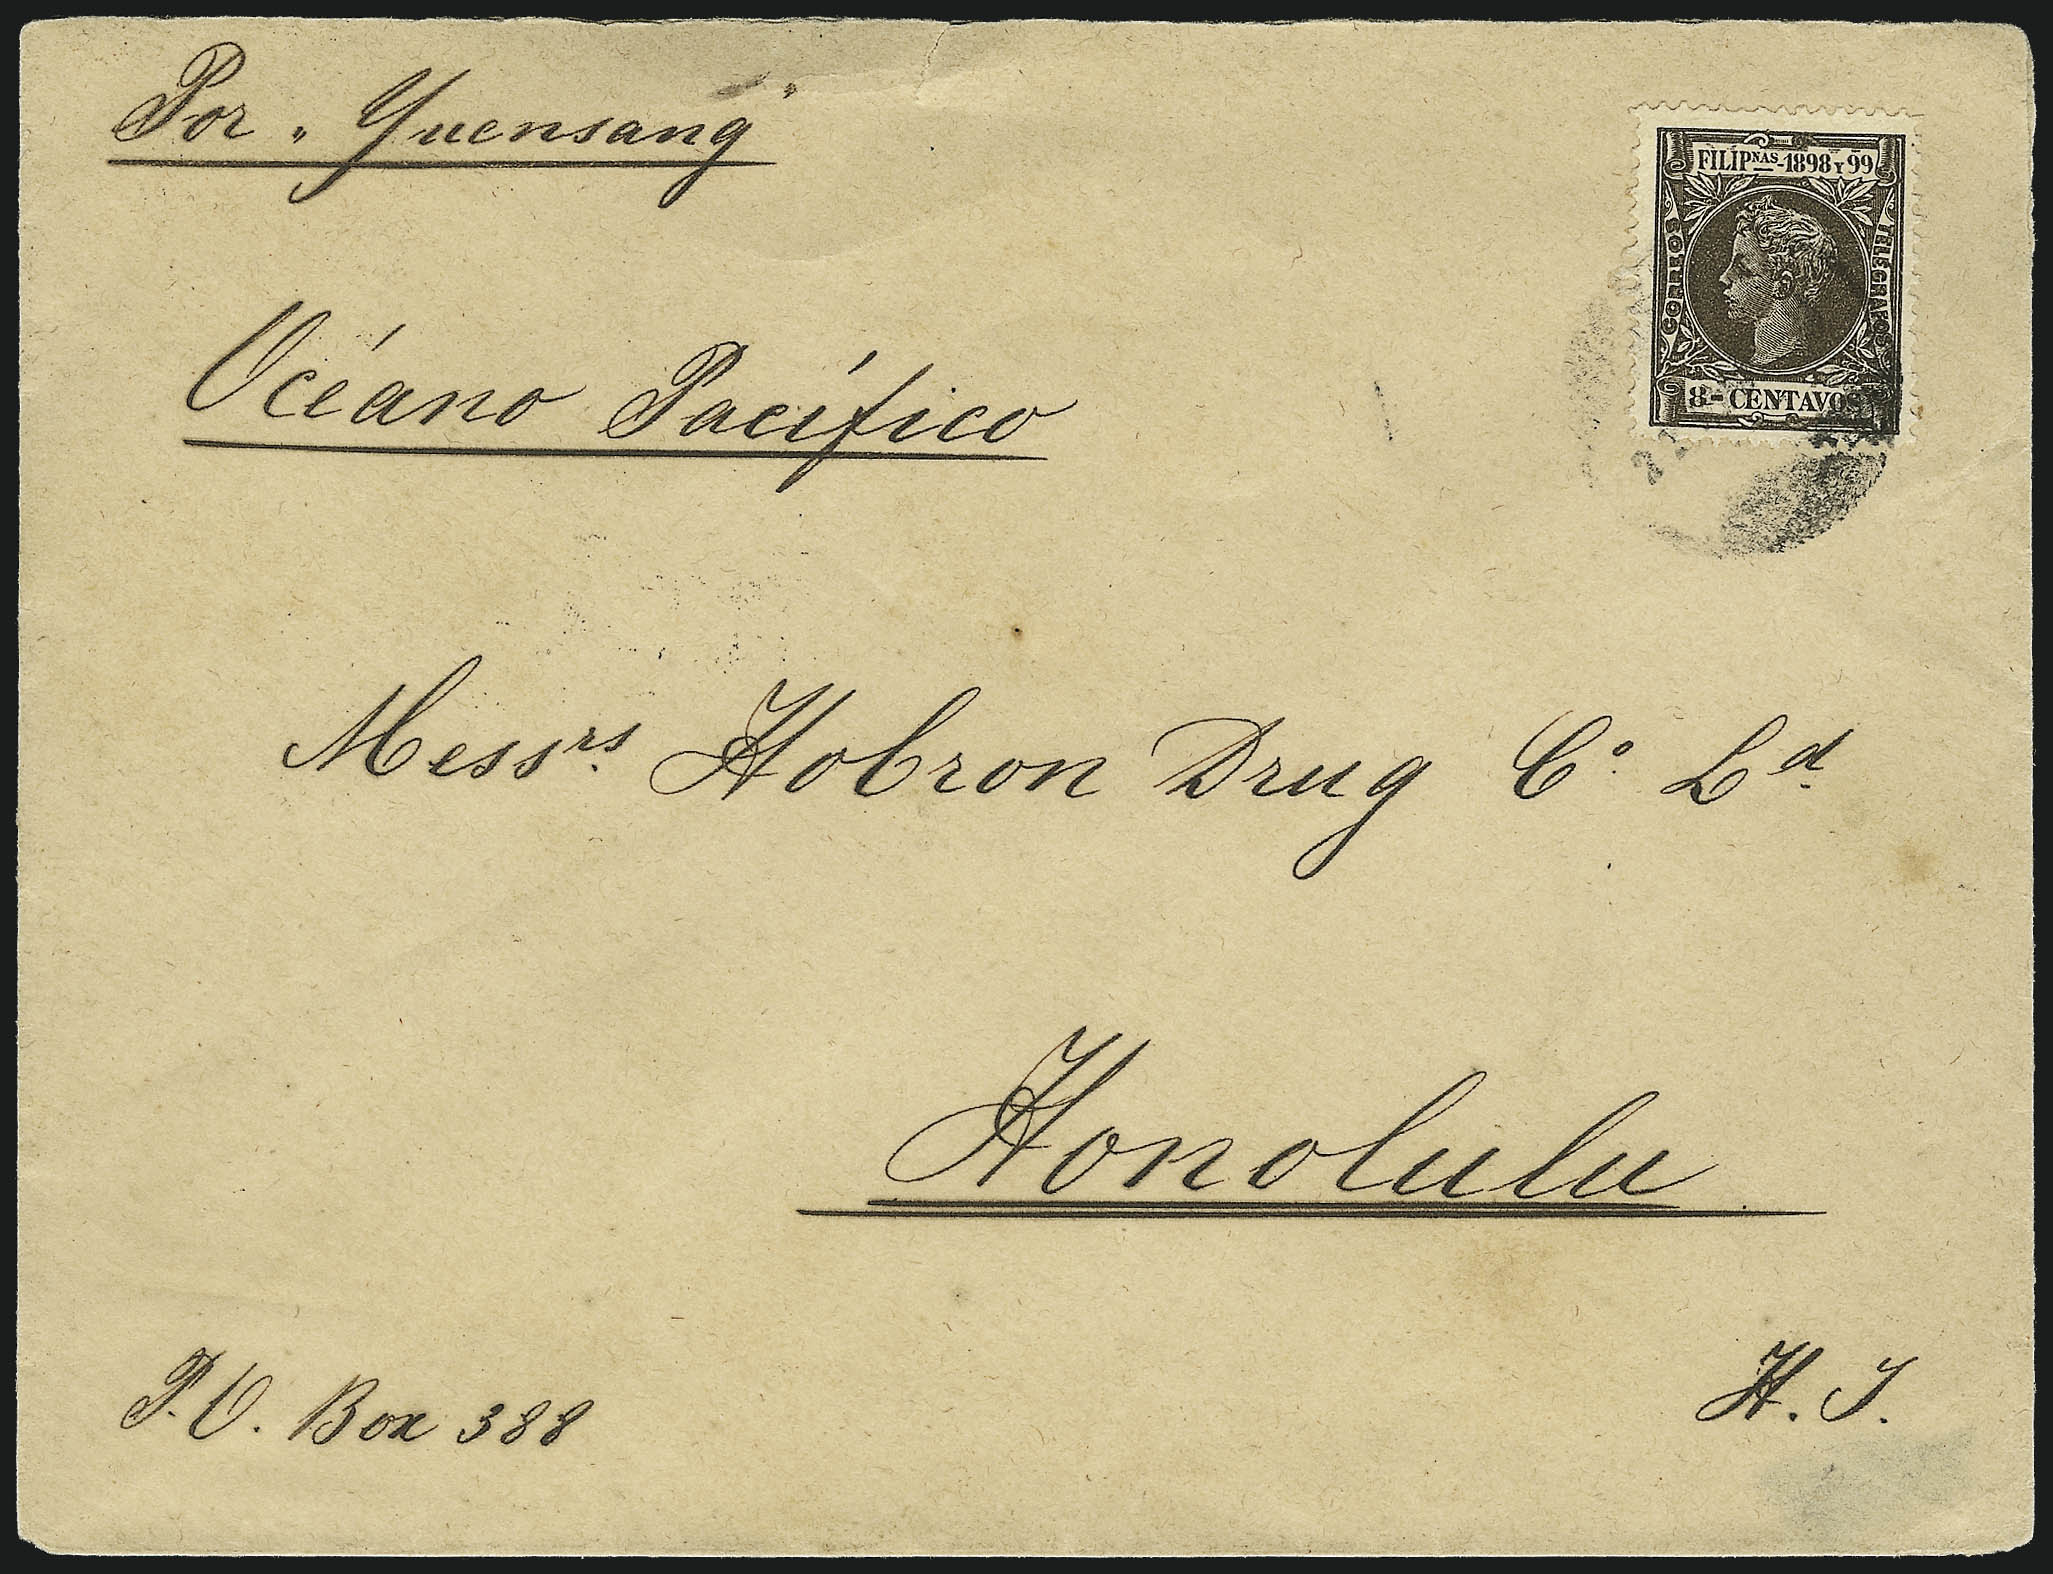 Por "Yuensang"
FILIPNAS-1898 Y 99
CORREOS
TELEGRAFOS
8-CENTAVOS
Océano Pacífico
Messrs. Hobron Drug Co. Ld.
Honolulu
P.O. Box 388
H. I.